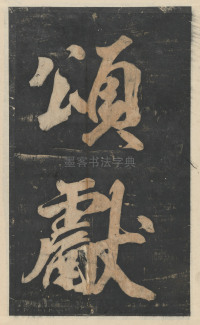 頌
獻
墨客书法字典